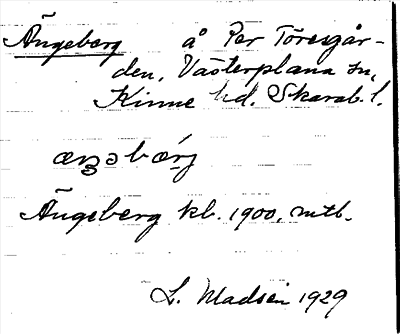 Ängeberg å Per Töresgår-
den, Västerplana sn,
Kinne hd. Skarab. l.
æŋəbærj
Ängeberg kb. 1900, mtb.
L. Madsén 1929